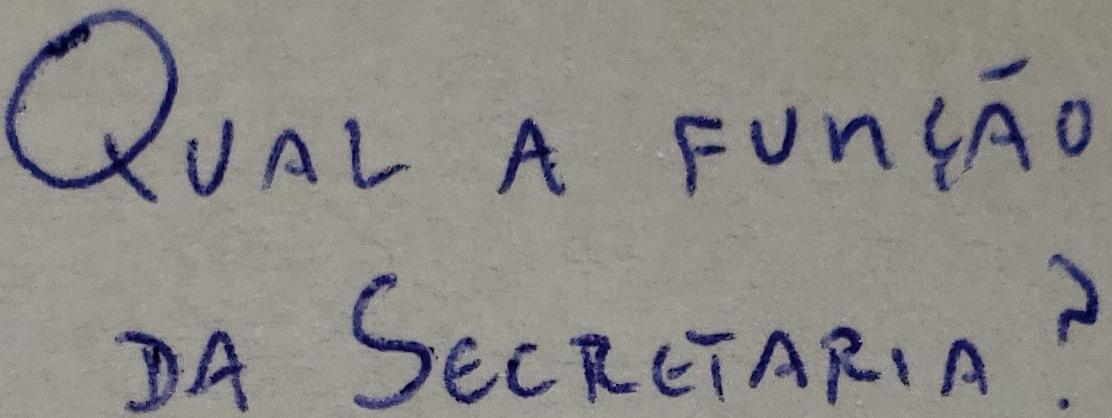 QUAL A FUNÇÃO
DA SECRETARIA?